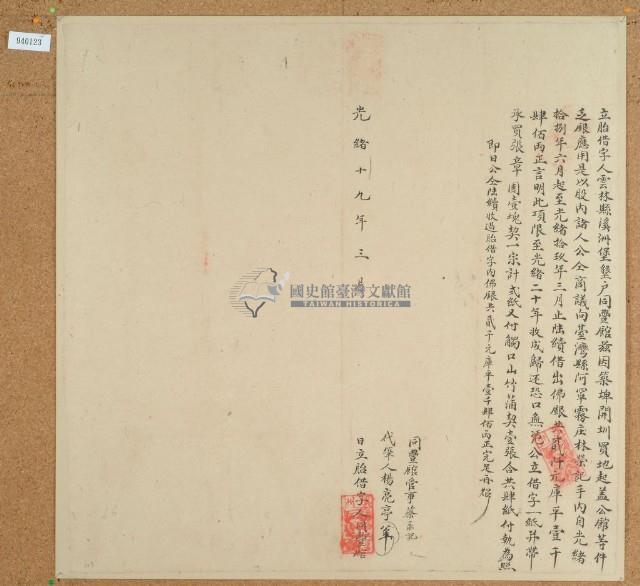 立胎借字人雲林縣溪洲堡墾户同豐館茲因築埤開圳買地起蓋公館等件
乏銀應用是以股内諸人公仝商議向臺灣縣阿罩霧庄林榮記手内自光緒
拾捌年六月起至光緒拾玖年三月止陸續借出佛銀共貳仟元庫平壹千
肆佰兩正言明此項限至光緒二十年收成歸还恐口無憑公立借字一紙并帶
承買張章園壹塊契一宗計弍紙又付觸口山竹蒲契壹張合共肆紙付執為照
即日公仝陸續收過胎借字内佛銀共貳千元庫平壹千肆佰兩正完足再炤
同豐館管事蔡
代筆人楊亮亭
日立胎借字人同豐館
光緒十九年三月
國史館臺灣文獻館
TAIWAN HISTORICA
940123